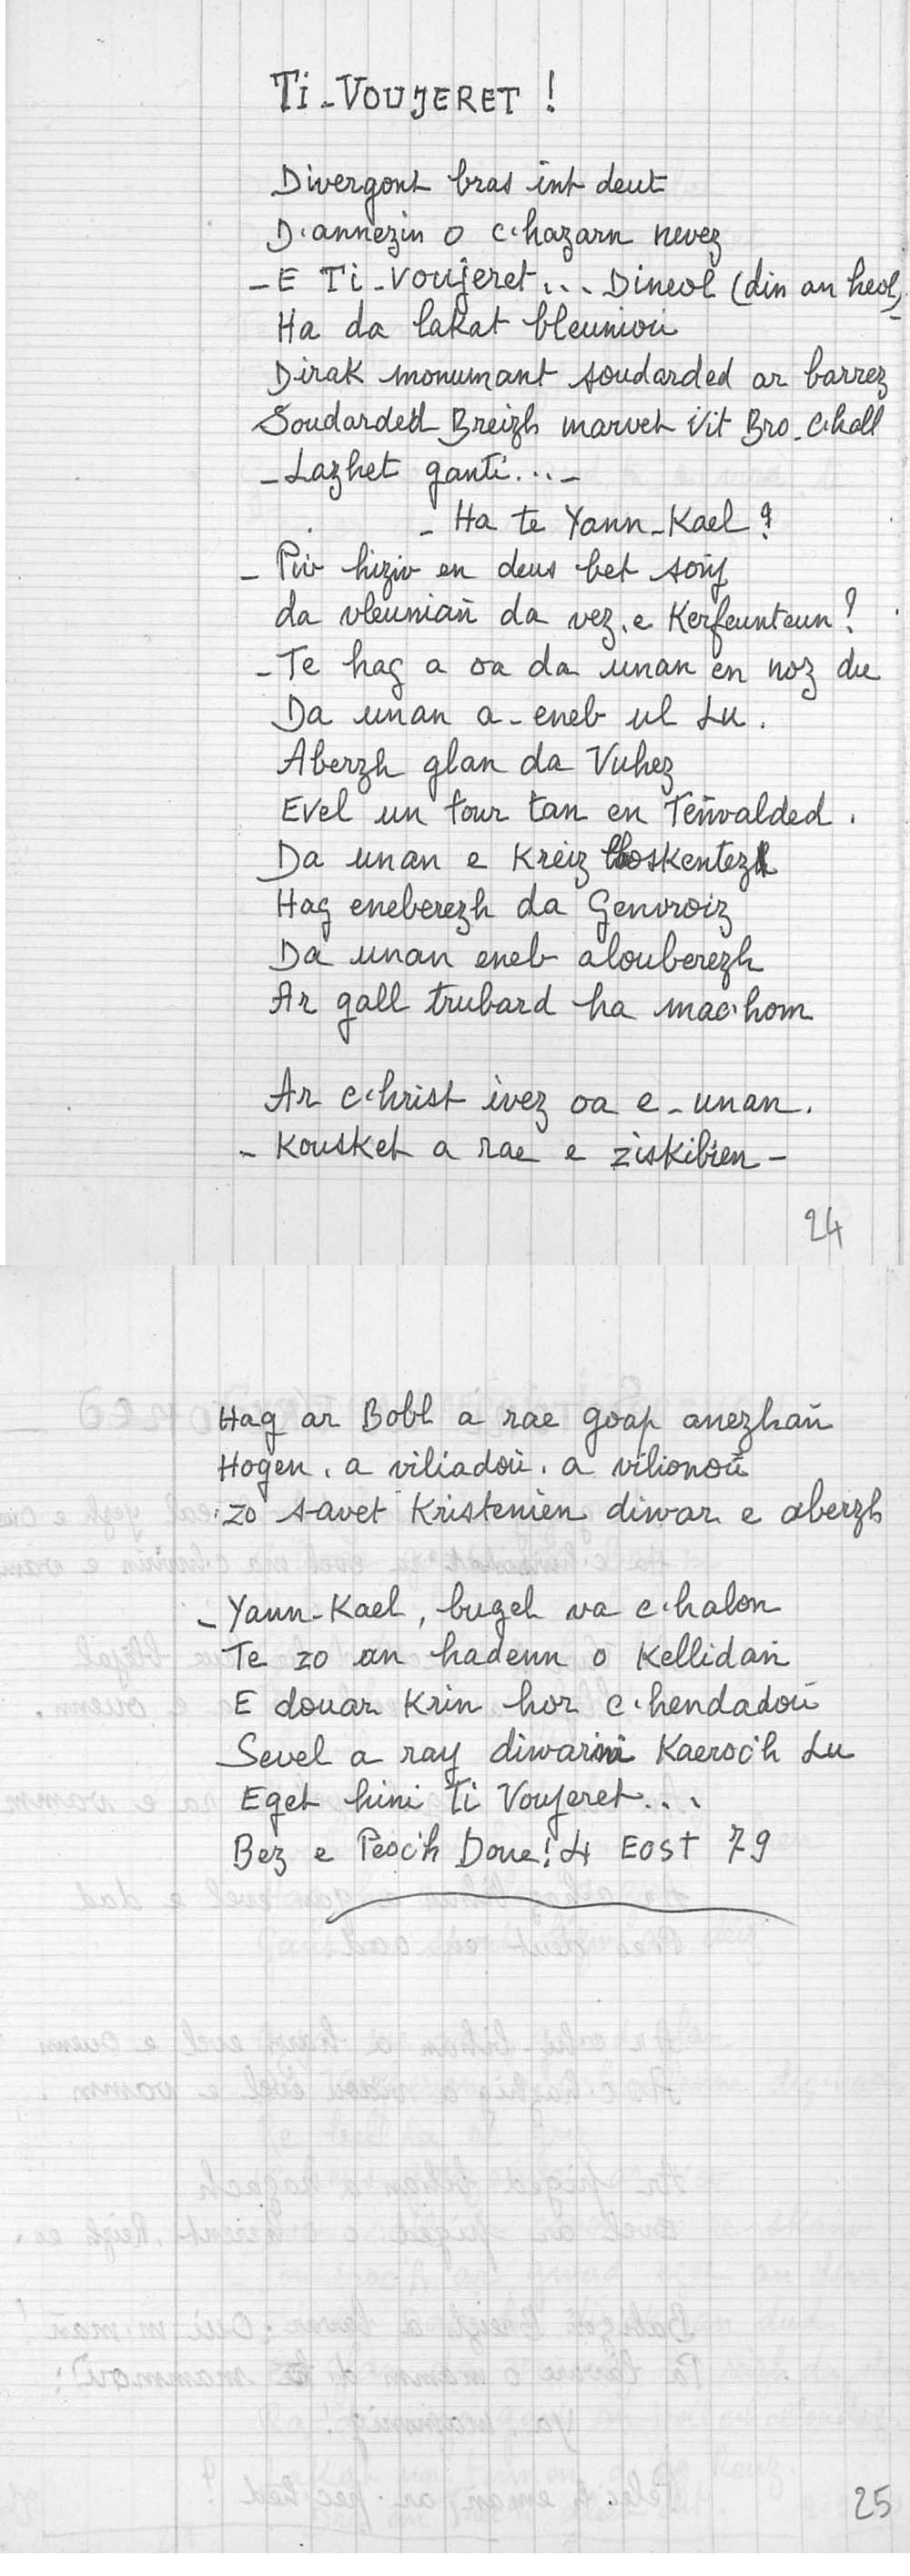 Ti-VOUJERET !
Divergont bras int deut
D'annezin o c'hazarn nevez
- E Ti-Voujeret... Dineol (din an heol)
Ha da lakat bleuniou
Dirak monumant soudarded ar barrez
Soudarded Breizh marvet Vit Bro-C'hall
- Lazhet ganti... -
- Ha te Yann-Kael ?
- Piv hiziv en deus bet soñj
da vleuniañ da vez e Kerfeunteun ?
- Te hag a oa da unan en noz du
Da unan a-eneb ul Lu.
Aberzh glan da Vuhez
Evel un tour tan en Teñvalded.
Da unan e Kreiz
Hag eneberezh da Genvroiz
Da unan eneb alouberezh
Ar gall trubard ha mac'hom
Ar C'hrist ivez oa e-unan.
- Kousket a rae e ziskibien -
24
Hag ar Bobl a rae goap anezhañ
Hogen, a viliadoù, a vilionoù
zo savet Kristenien diwar e aberzh
- Yann-Kael, bugel va c'halon
Te zo an hadenn o Kellidañ
E douar Krin hor c'hendadoù
Sevel a ray diwarni Kaeroc'h Lu
Eget hini Ti Voujeret...
Bez e Peoc'h Doue! 4 EOST 79
25